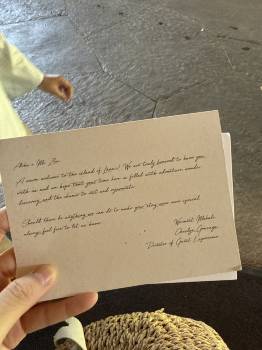 Aloha e Mr.
A warm welcome to the island of Lanai! We are truly honored to have you
with us and we hope that your time here is filled with adventure, wonder,
discovery, and the chance to rest and rejuvenate.
Should there be anything we can do to make your stay even more special,
always feel free to let us know.
Warmest Mahalo,
Director of Guest Experience